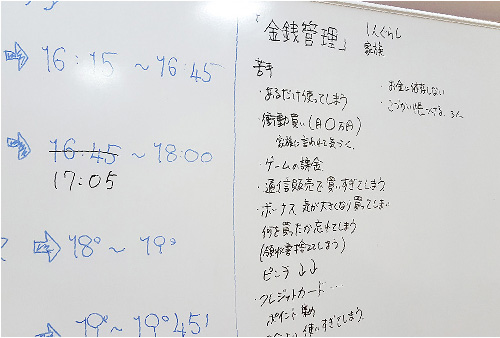 16:15 ~ 16:45
16:45 ~ 18:00
17:05
18° ~ 19°
19° ~ 19°45'
「金銭管理」
家族
苦手
・あるだけ使ってしまう
・衝動買い(月〇万円)
家族に言われて気づく。
・ゲームの課金
・通信販売で買いすぎてしまう
・ボーナス 気が大きくなり買ってしまい
何を買ったか忘れてしまう
(領収書捨ててしまう)
ピンチ ↓↓
・クレジットカード…
ポイント
使いすぎてしまう